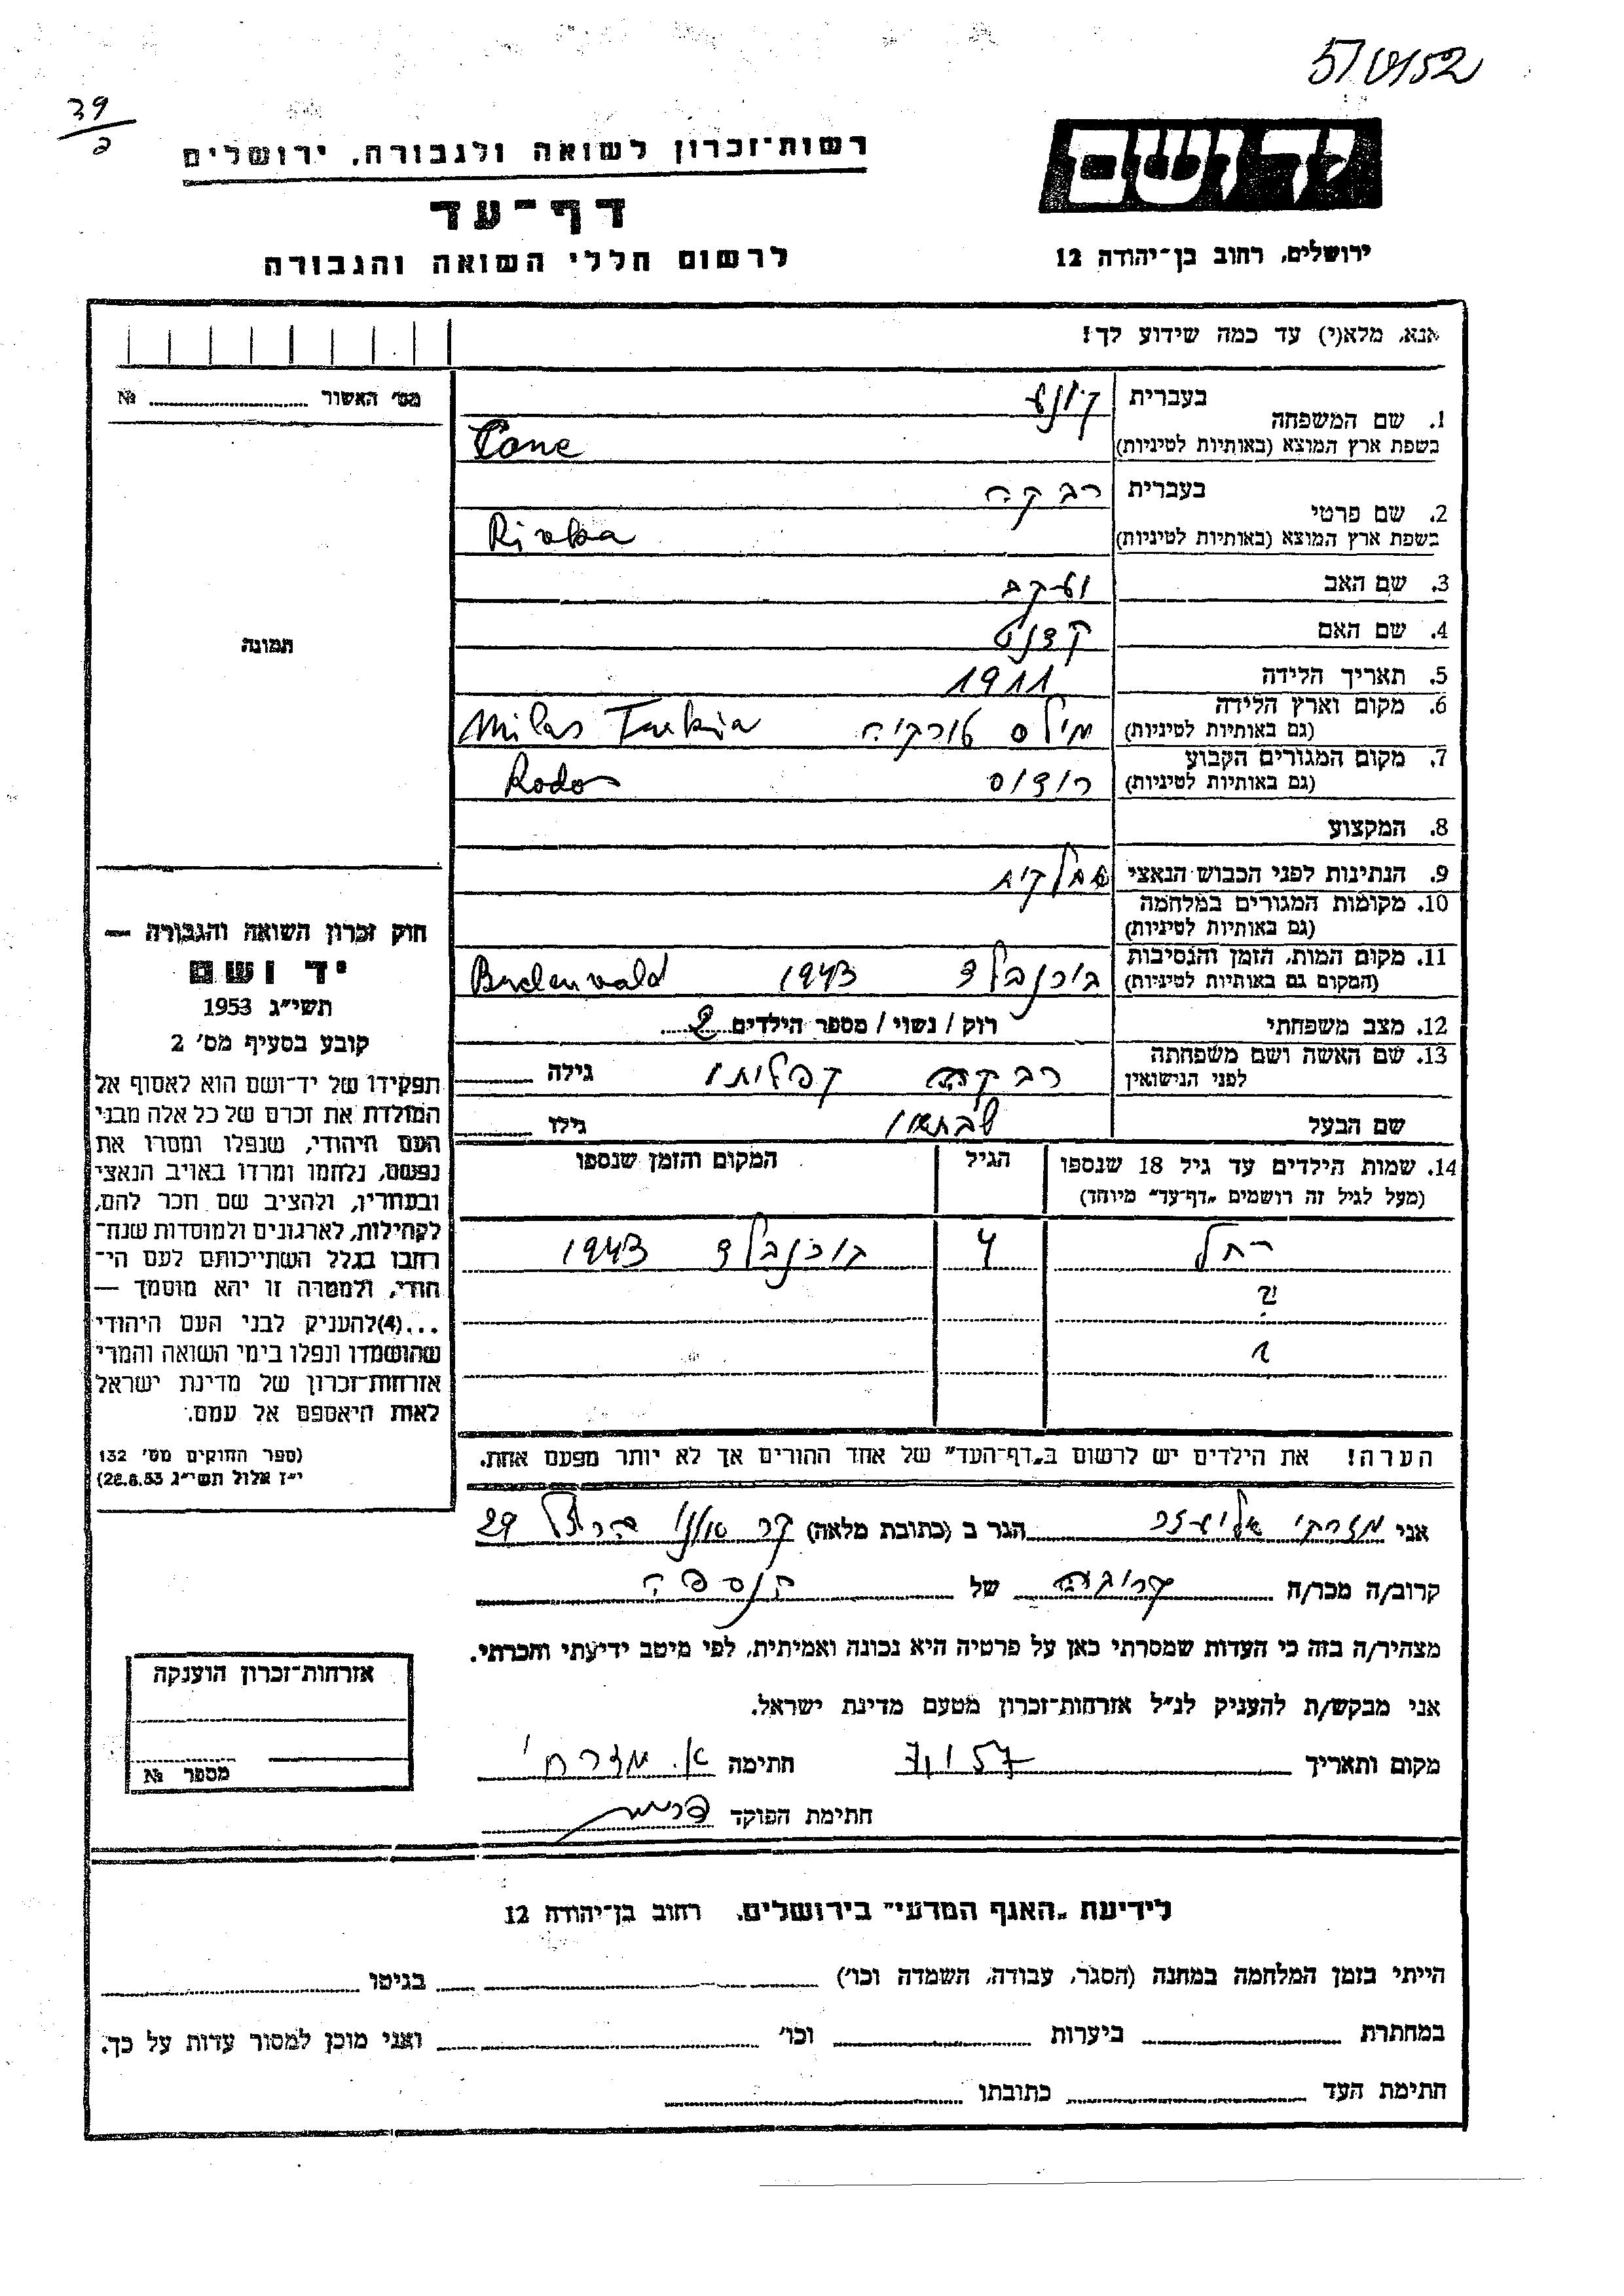 39
רשות־זכרון לשואה ולגבורה, ירושלים
דף־עד
לרשום חללי השואה והגבורה
יד ושם
ירושלים, רחוב בן־יהודה 12
אנא, מלא(י) עד כמה שידוע לך!
מס׳ האשור № 
1. שם המשפחה בעברית
בשפת ארץ המוצא (באותיות לטיניות) Cone
2. שם פרטי בעברית רבקה
בשפת ארץ המוצא (באותיות לטיניות) Rivka
3. שם האב יעקב
4. שם האם
5. תאריך הלידה 1911
6. מקום וארץ הלידה
(גם באותיות לטיניות) מילס טורקיה Milas Turkia
7. מקום המגורים הקבוע
(גם באותיות לטיניות) רודוס Rodos
8. המקצוע
9. הנתינות לפני הכבוש הנאצי
10. מקומות המגורים במלחמה
(גם באותיות לטיניות)
11. מקום המות, הזמן והנסיבות
(המקום גם באותיות לטיניות) בוכנבלד 1943 Buchenwald
12. מצב משפחתי רוק / נשוי / מספר הילדים 2
13. שם האשה ושם משפחתה
לפני הנישואין רבקה קפלוטו גילה
שם הבעל שבתאי גילו
14. שמות הילדים עד גיל 18 שנספו הגיל המקום והזמן שנספו
(מעל לגיל זה רושמים „דף־עד״ מיוחד)
רחל 4 בוכנבלד 1943
הערה! את הילדים יש לרשום ב„דף־העד״ של אחד ההורים אך לא יותר מפעם אחת.
תמונה
חוק זכרון השואה והגבורה —
יד ושם
תשי״ג 1953
קובע בסעיף מס׳ 2
תפקידו של יד־ושם הוא לאסוף אל
המולדת את זכרם של כל אלה מבני
העם היהודי, שנפלו ומסרו את
נפשם, נלחמו ומרדו באויב הנאצי
ובעוזריו, ולהציב שם וזכר להם,
לקהילות, לארגונים ולמוסדות שנח־
רבו בגלל השתייכותם לעם הי־
הודי, ולמטרה זו יהא מוסמך —
...(4) להעניק לבני העם היהודי
שהושמדו ונפלו בימי השואה והמרי
אזרחות־זכרון של מדינת ישראל
לאות היאספם אל עמם.
(ספר החוקים מס׳ 132
י״ז אלול תשי״ג 28.8.53)
אני מזרחי אליעזר הגר ב (כתובת מלאה) 29
קרוב/ה מכר/ה קרובה של הנספה
מצהיר/ה בזה כי העדות שמסרתי כאן על פרטיה היא נכונה ואמיתית, לפי מיטב ידיעתי והכרתי.
אני מבקש/ת להעניק לנ״ל אזרחות־זכרון מטעם מדינת ישראל.
מקום ותאריך חתימה א. מזרחי
חתימת הפוקד
אזרחות־זכרון הוענקה
מספר №
לידיעת „האגף המדעי״ בירושלים, רחוב בן־יהודה 12
הייתי בזמן המלחמה במחנה (הסגר, עבודה, השמדה וכו׳) בגיטו
במחתרת ביערות וכו׳ ואני מוכן למסור עדות על כך.
חתימת העד כתובתו